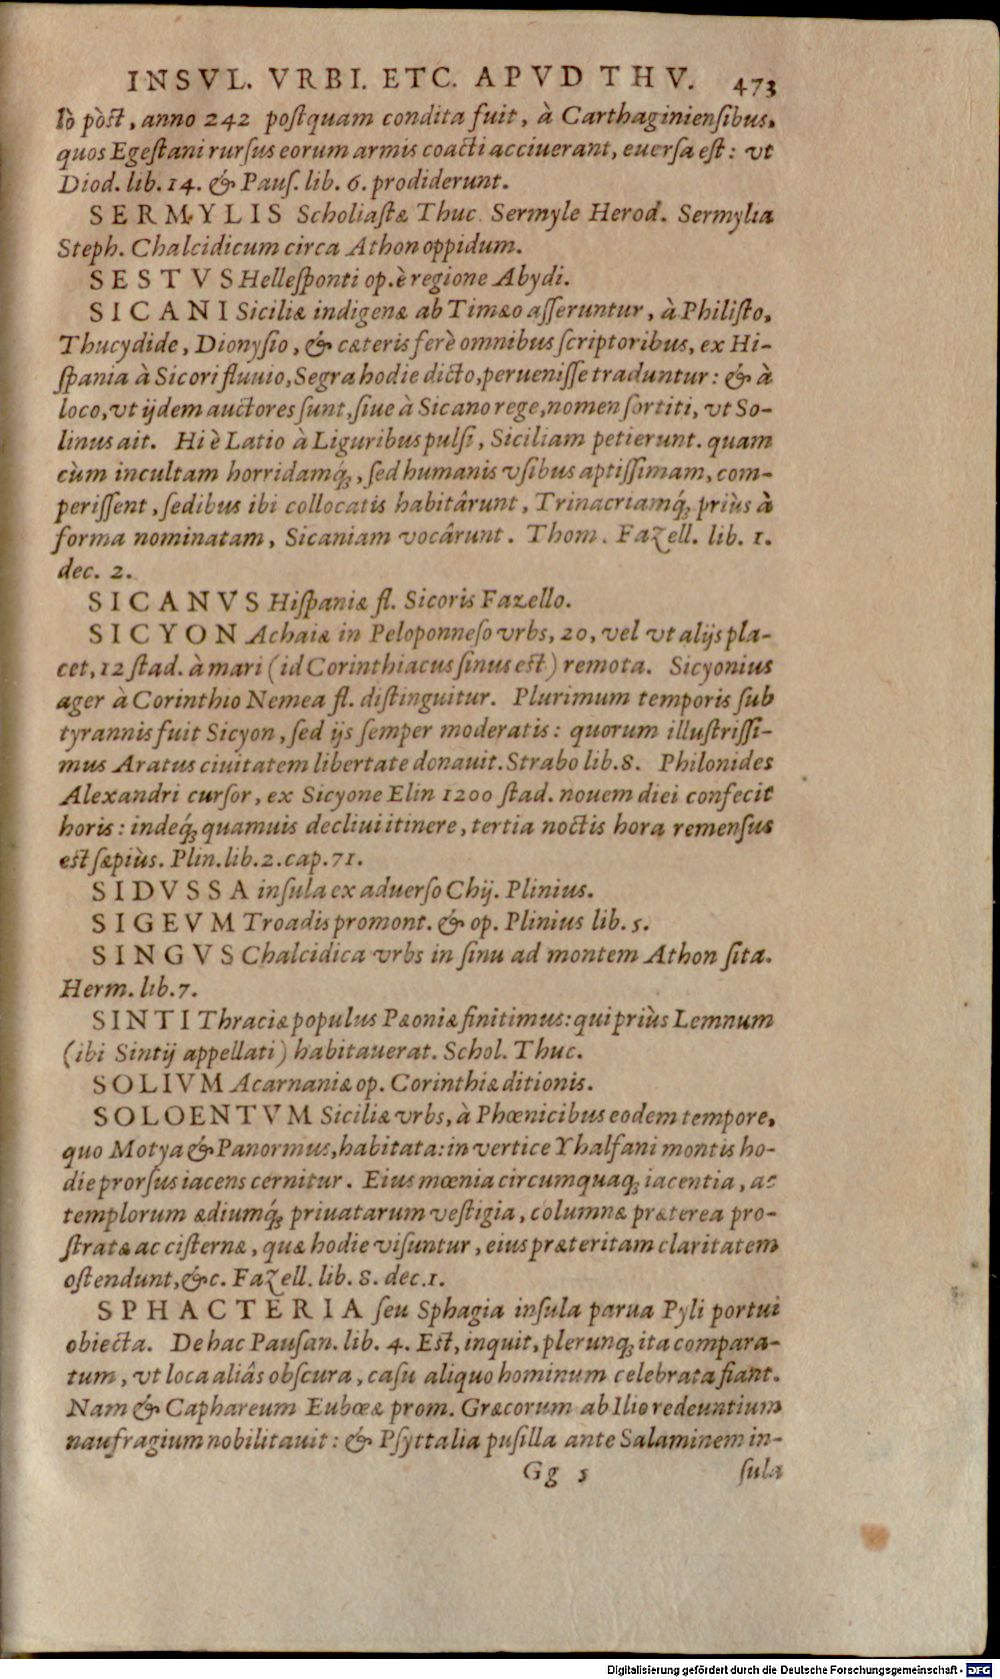 INSVL. VRBI. ETC. APVD THV. 473
lò pòst, anno 242 postquam condita fuit, à Carthaginiensibus,
quos Egestani rursus eorum armis coacti acciuerant, euersa est: vt
Diod. lib. 14. & Paus. lib. 6. prodiderunt.
SERMYLIS Scholiastæ Thuc. Sermyle Herod. Sermylia
Steph. Chalcidicum circa Athon oppidum.
SESTVS Hellesponti op. è regione Abydi.
SICANI Siciliæ indigenæ ab Timæo asseruntur, à Philisto,
Thucydide, Dionysio, & cæteris ferè omnibus scriptoribus, ex Hi-
spania à Sicori fluuio, Segra hodie dicto, peruenisse traduntur: & à
loco, vt ijdem auctores sunt, siue à Sicano rege, nomen sortiti, vt So-
linus ait. Hi è Latio à Liguribus pulsi, Siciliam petierunt. quam
cùm incultam horridamq́;, sed humanis vsibus aptissimam, com-
perissent, sedibus ibi collocatis habitârunt, Trinacriamq́; priùs à
forma nominatam, Sicaniam vocârunt. Thom. Fazell. lib. 1.
dec. 2.
SICANVS Hispaniæ fl. Sicoris Fazello.
SICYON Achaiæ in Peloponneso vrbs, 20, vel vt alijs pla-
cet, 12 stad. à mari (id Corinthiacus sinus est) remota. Sicyonius
ager à Corinthio Nemea fl. distinguitur. Plurimum temporis sub
tyrannis fuit Sicyon, sed ijs semper moderatis: quorum illustrissi-
mus Aratus ciuitatem libertate donauit. Strabo lib. 8. Philonides
Alexandri cursor, ex Sicyone Elin 1200 stad. nouem diei confecit
horis: indeq́; quamuis decliui itinere, tertia noctis hora remensus
est sæpiùs. Plin. lib. 2. cap. 71.
SIDVSSA insula ex aduerso Chij. Plinius.
SIGEVM Troadis promont. & op. Plinius lib. 5.
SINGVS Chalcidica vrbs in sinu ad montem Athon sita.
Herm. lib. 7.
SINTI Thraciæ populus Pæoniæ finitimus: qui priùs Lemnum
(ibi Sintij appellati) habitauerat. Schol. Thuc.
SOLIVM Acarnaniæ op. Corinthiæ ditionis.
SOLOENTVM Siciliæ vrbs, à Phœnicibus eodem tempore,
quo Motya & Panormus, habitata: in vertice Yhalfani montis ho-
die prorsus iacens cernitur. Eius mœnia circumquaq; iacentia, ac
templorum ædiumq́; priuatarum vestigia, columnæ præterea pro-
stratæ ac cisternæ, quæ hodie visuntur, eius præteritam claritatem
ostendunt, &c. Fazell. lib. 8. dec. 1.
SPHACTERIA seu Sphagia insula parua Pyli portui
obiecta. De hac Pausan. lib. 4. Est, inquit, plerunq; ita compara-
tum, vt loca aliâs obscura, casu aliquo hominum celebrata fiant.
Nam & Caphareum Eubœæ prom. Græcorum ab Ilio redeuntium
naufragium nobilitauit: & Psyttalia pusilla ante Salaminem in-
Gg 5 sula
Digitalisierung gefördert durch die Deutsche Forschungsgemeinschaft - DFG